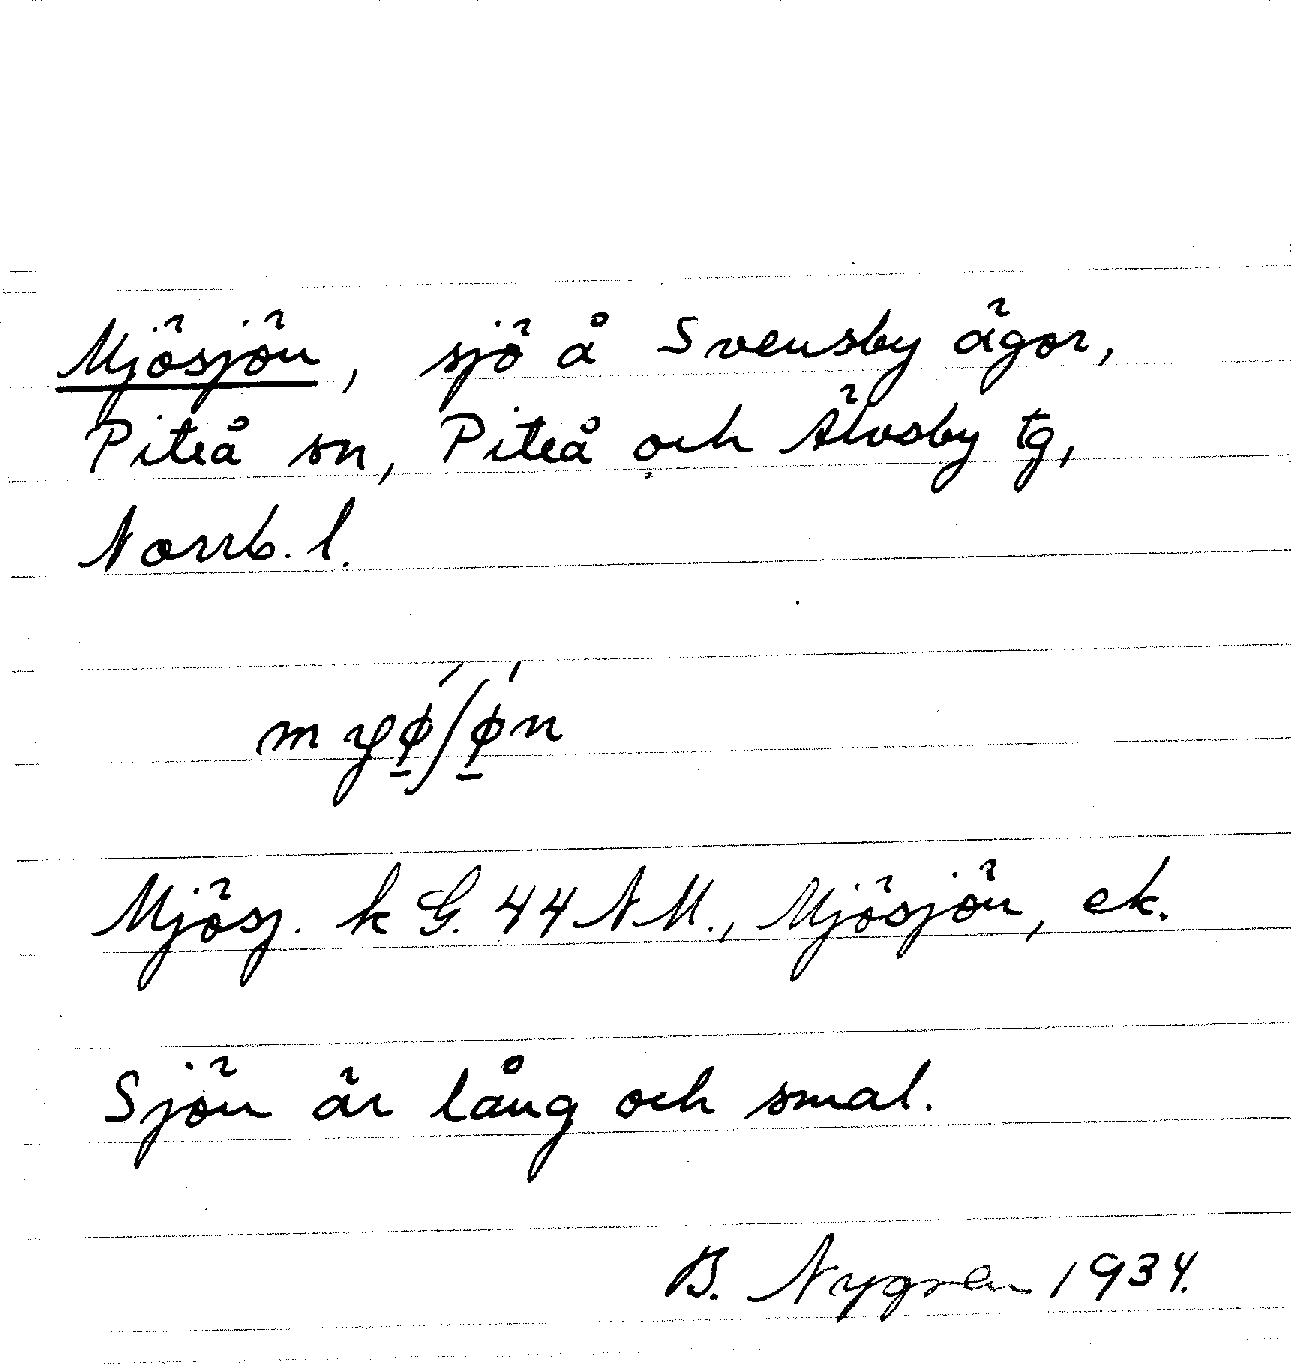 Mjösjön, sjö å Svensby ägor,
Piteå sn, Piteå och Älvsby tg,
Norrb. l.
Mjösj. k G. 44 NM., Mjösjön, ek.
Sjön är lång och smal.
B. Nygren 1934.